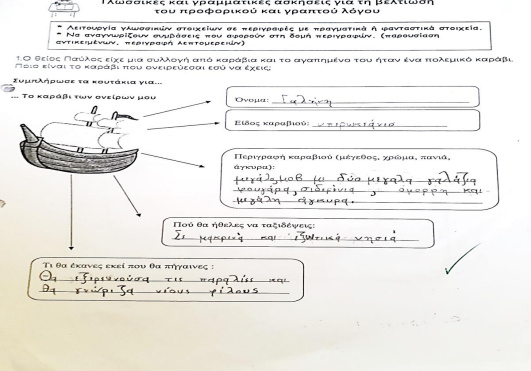 Γλωσσικές και γραμματικές ασκήσεις για τη βελτίωση
του προφορικού και γραπτού λόγου
* Λειτουργία γλωσσικών στοιχείων σε περιγραφές με πραγματικά ή φανταστικά στοιχεία.
* Να αναγνωρίζουν συμβάσεις που αφορούν στη δομή περιγραφών. (παρουσίαση
αντικειμένων, περιγραφή λεπτομερειών)
1.Ο θείος Παύλος είχε μια συλλογή από καράβια και το αγαπημένο του ήταν ένα πολεμικό καράβι.
Ποιο είναι το καράβι που ονειρεύεσαι εσύ να έχεις;
Συμπλήρωσε τα κουτάκια για...
... Το καράβι των ονείρων μου
Όνομα: Γαλήνη
Είδος καραβιού: υπερωκεάνιο
Περιγραφή καραβιού (μέγεθος, χρώμα, πανιά,
άγκυρα):
με δύο μεγάλα γαλάζια
φουγάρα, σιδερένια, όμορφη και
μεγάλη άγκυρα.
Πού θα ήθελες να ταξιδέψεις:
Σε μακρινά και εξωτικά νησιά
Τι θα έκανες εκεί που θα πήγαινες :
Θα εξερευνούσα τις παραλίες και
θα γνώριζα νέους φίλους